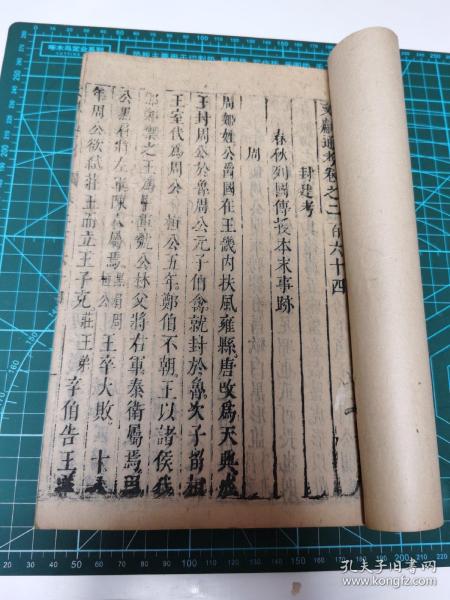 文獻通考卷之二百六十四
封建考
春秋列國傳授本末事跡
周
周姬姓公爵國在王畿內扶風雍縣唐改爲天興
王封周公於魯周公元子伯禽就封於魯次子留相
王室代爲周公 桓公五年鄭伯不朝王以諸侯伐
鄭鄭禦之王爲中軍虢公林父將右軍蔡衛屬焉周
公黑肩將左軍陳人屬焉 黑肩周桓公 王卒大敗 十八
年周公欲弒莊王而立王子克 莊王弟 辛伯告王遂
孔夫子旧书网
www.kongfz.com